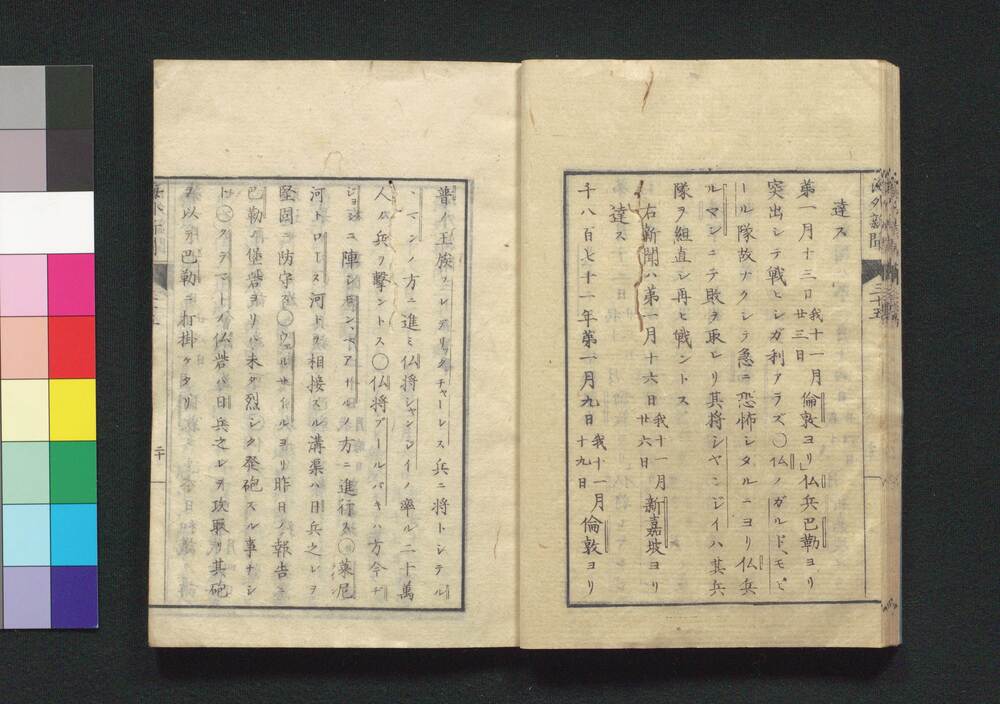 海外新聞
三十五
達ス
第一月十三日我十一月廿三日倫敦ヨリ仏兵巴勒ヨリ
突出シテ戦ヒシガ利アラズ○仏ノガルド、モビ
ール隊故ナクシテ急ニ恐怖シタルニヨリ仏兵
ルマンニテ敗ヲ取レリ其将シヤンジイハ其兵
隊ヲ組直シ再ヒ戦ントス
右新聞ハ第一月十六日我十一月廿六日新嘉坡ヨリ
達ス
千八百七十一年第一月九日我十一月十九日倫敦ヨリ
普ノ王族フレデリックチャーレス兵ニ将トシテル
、マンノ方ニ進ミ仏将シャンジイノ率ル二十萬
人ノ兵ヲ撃ントス○仏将ブールバキハ方今
ニ陣シ方ニ進行ス○藻尼
河トローヌ河トヲ相接スル溝渠ハ日兵之レヲ
堅固ニ防守ス○ウェルサイルヨリ昨日ノ報告ニ
巴勒ノ堡砦ヨリハ未タ烈シク発砲スル事ナシ
ト○クラマートノ仏砦ハ日兵之レヲ攻取リ其砲
ヲ以テ巴勒ニ打掛ケタリ
二十